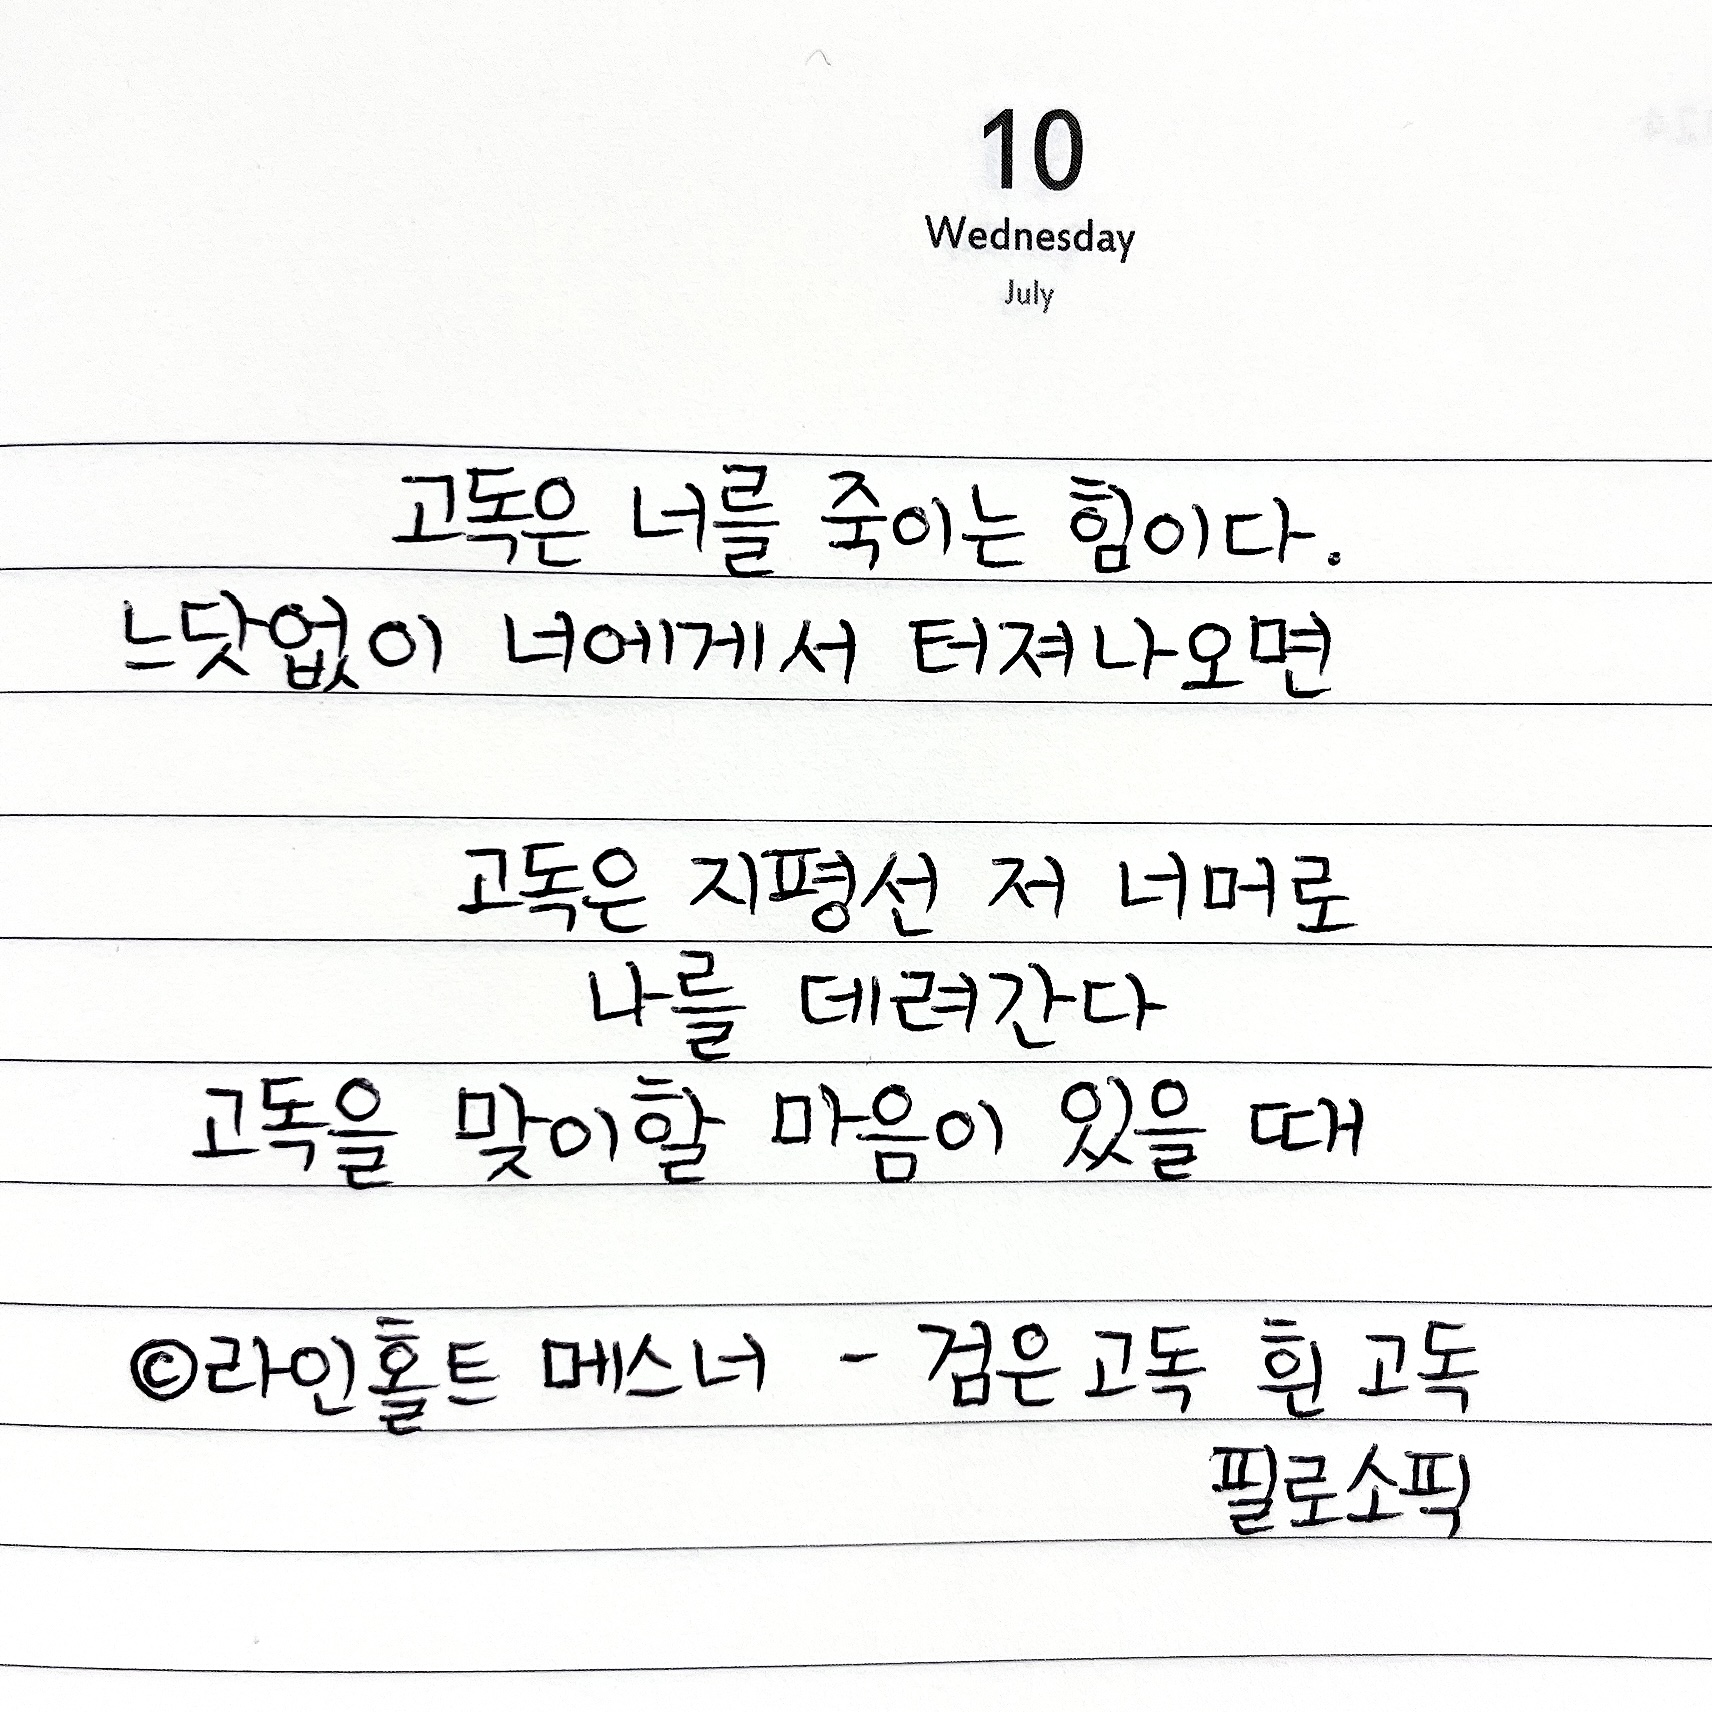 10
Wednesday
July
고독은 너를 죽이는 힘이다.
느닷없이 너에게서 터져나오면
고독은 지평선 저 너머로
나를 데려간다
고독을 맞이할 마음이 있을 때
©라인홀트 메스너 - 검은고독 흰고독
필로소픽